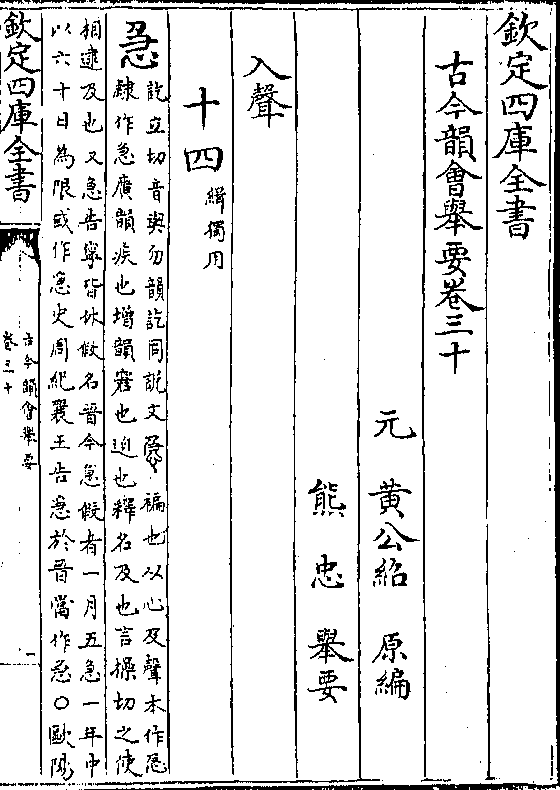 欽定四庫全書
古今韻會舉要卷三十
元 黄公紹 原編
熊忠 舉要
入聲
十四
緝獨用
急
訖立切音與勿韻訖同説文
褊也从心及聲本作㤂
隸作急廣韻疾也增韻窘也迫也釋名及也言操切之使
相逮及也又急告寧皆休假名晉令急假者一月五急一年中
以六十日為限或作 史周紀襄王告急於晉當作急○歐陽
欽定四庫全書
古今韻會舉要
卷三十
一